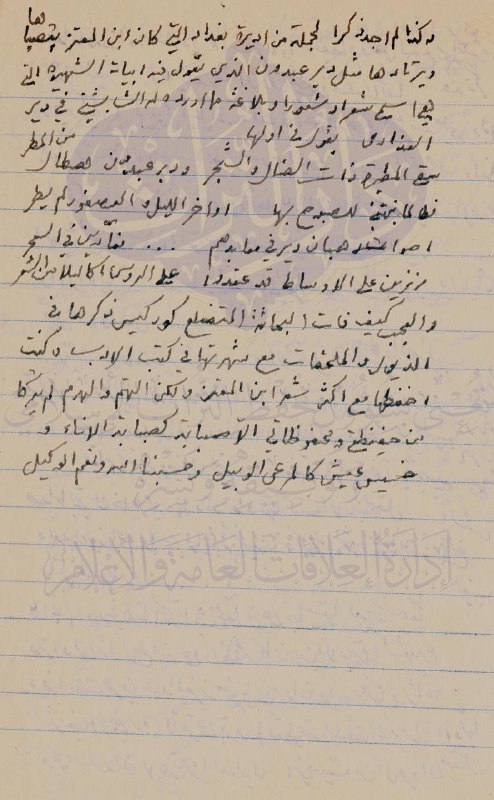 وكنت لم اجد ذكرا لجملة من اديرة بغداد التي كان ابن المعتز يتصباها
ويرتادها مثل دير عبدون الذي يقول فيه ابياته الشهيرة التي
هي اسمى شعراً وشعورا وبلاغة ما اورده له الشابشتي في دير
العذارى يقول في اولها
سقى المطيرة ذات الضال والشجر ودير عبدون هطال من المطر
فطالما نبهتني للصبوح بها اواخر الليل والعصفور لم يطر
اصوات رهبان دير في معابدهم ... نعّارين في السحر
مزنرين على الاوساط قد عقدوا على الرؤس اكاليلا من الشعر
والعجب كيف فات البحاثة المتضلع كوركيس ذكرها في
الذيول والملحقات مع شهرتها في كتب الادب وكنت
احفظها مع اكثر شعر ابن المعتز ولكن الهمّ والهرم لم يتركا
من حفيظتي ومحفوظاتي الا صبابة كصبابة الاناء و
خسيس عيش كالمرعى الوبيل وحسبنا الله ونعم الوكيل
إدارة العلاقات العامة والإعلام